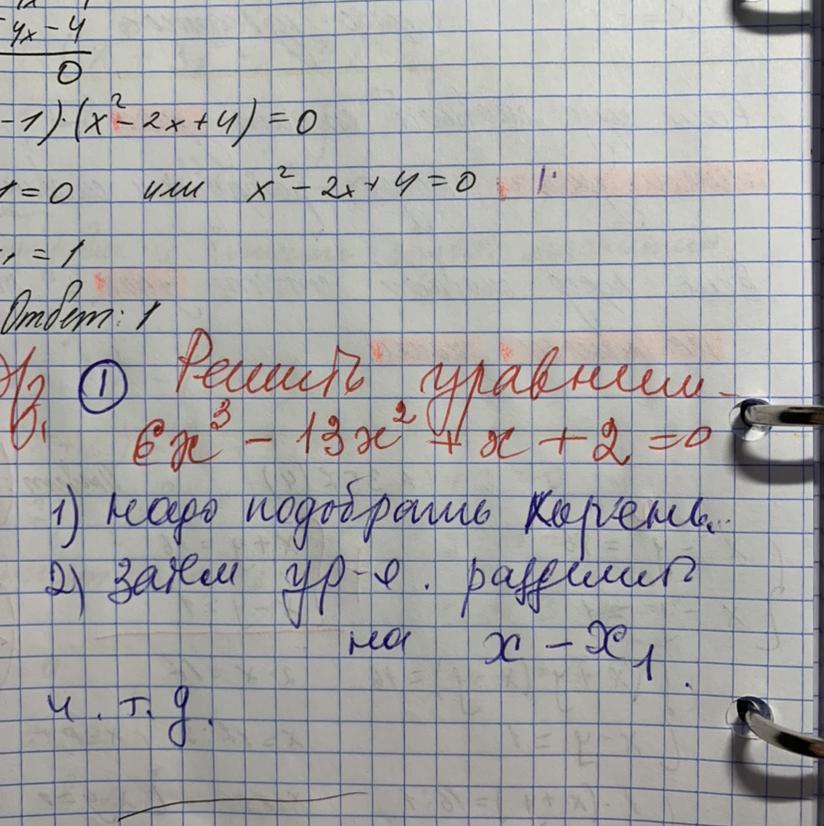 4x-4
0
-1)·(x²-2x+4)=0
1=0 или x²-2x+4=0
=1
Ответ: 1
① Решить уравнени
6x³-13x²+x+2=0
1) надо подобрать корень.
2) затем ур-е. разделить
на x-x₁.
и.т.д.